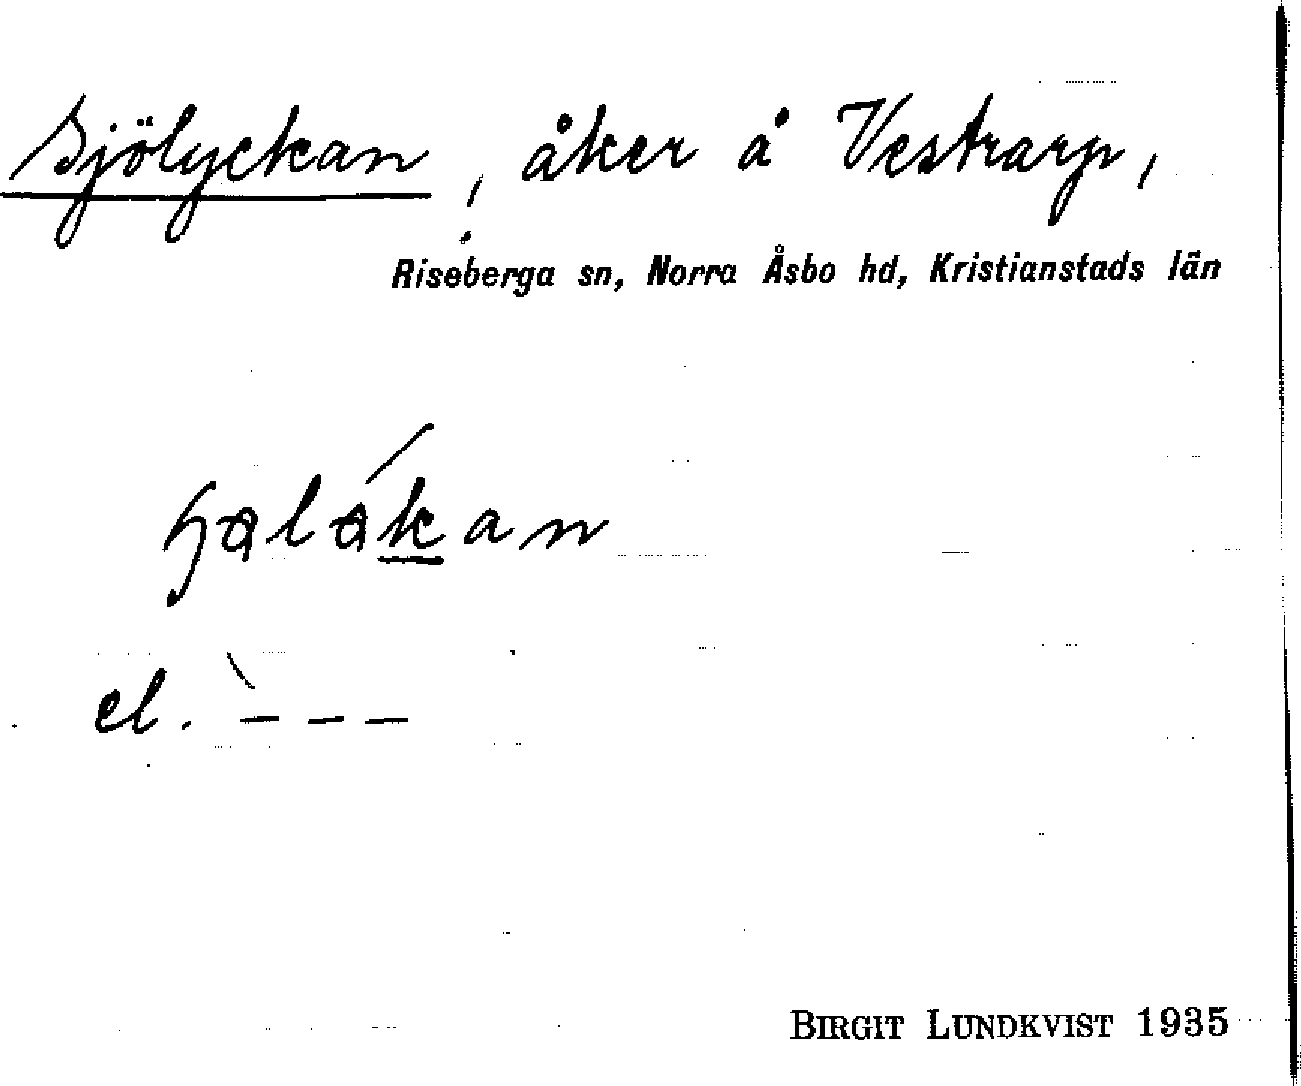 Sjölyckan, åker å Vestrarp,
Riseberga sn, Norra Åsbo hd, Kristianstads län
el. ` – – –
BIRGIT LUNDKVIST 1935